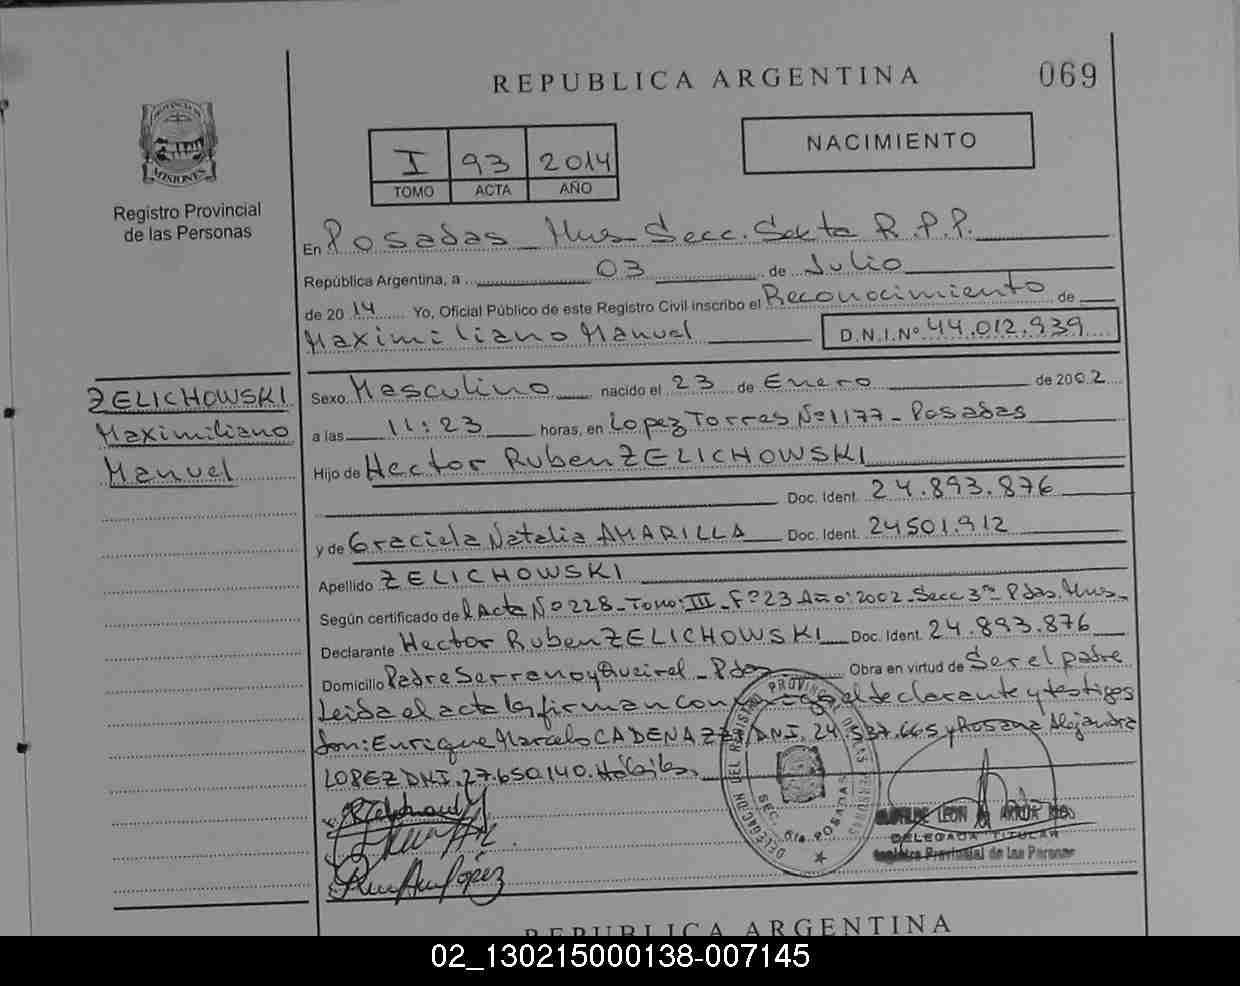 REPUBLICA ARGENTINA
069
PROVINCIA DE
MISIONES
Registro Provincial
de las Personas
I 93 2014
TOMO ACTA AÑO
NACIMIENTO
En Posadas Mnes Secc. Sexta R.P.P.
República Argentina, a 03 de Julio
de 2014 Yo, Oficial Público de este Registro Civil inscribo el Reconocimiento de
Maximiliano Manuel D.N.I.Nº 44.012.939
ZELICHOWSKI
Maximiliano
Manuel
Sexo Masculino nacido el 23 de Enero de 2002
a las 11:23 horas, en Lopez Torres Nº 1177 - Posadas
Hijo de Hector Ruben ZELICHOWSKI
Doc. Ident. 24.893.876
y de Graciela Natalia AMARILLA Doc. Ident. 24501.912
Apellido ZELICHOWSKI
Según certificado del Acta Nº 228 - Tomo: III - Fº 23 Año: 2002 - Secc 3ra Pdas. Mnes -
Declarante Hector Ruben ZELICHOWSKI Doc. Ident. 24.893.876
Domicilio Padre Serrano y Queirel - Pdas Obra en virtud de Ser el padre
Leida el acta la firman conmigo el declarante y testigos
Son: Enrique Marcelo CADENAZZI DNI. 24.537.665 y Rosana Alejandra
LOPEZ DNI. 27.650.140. Hábiles.
DELEGACION DEL REGISTRO PROVINCIAL DE LAS PERSONAS
SEC. 6ta POSADAS
LEON
DELEGADA TITULAR
Registro Provincial de las Personas
REPUBLICA ARGENTINA
02_130215000138-007145